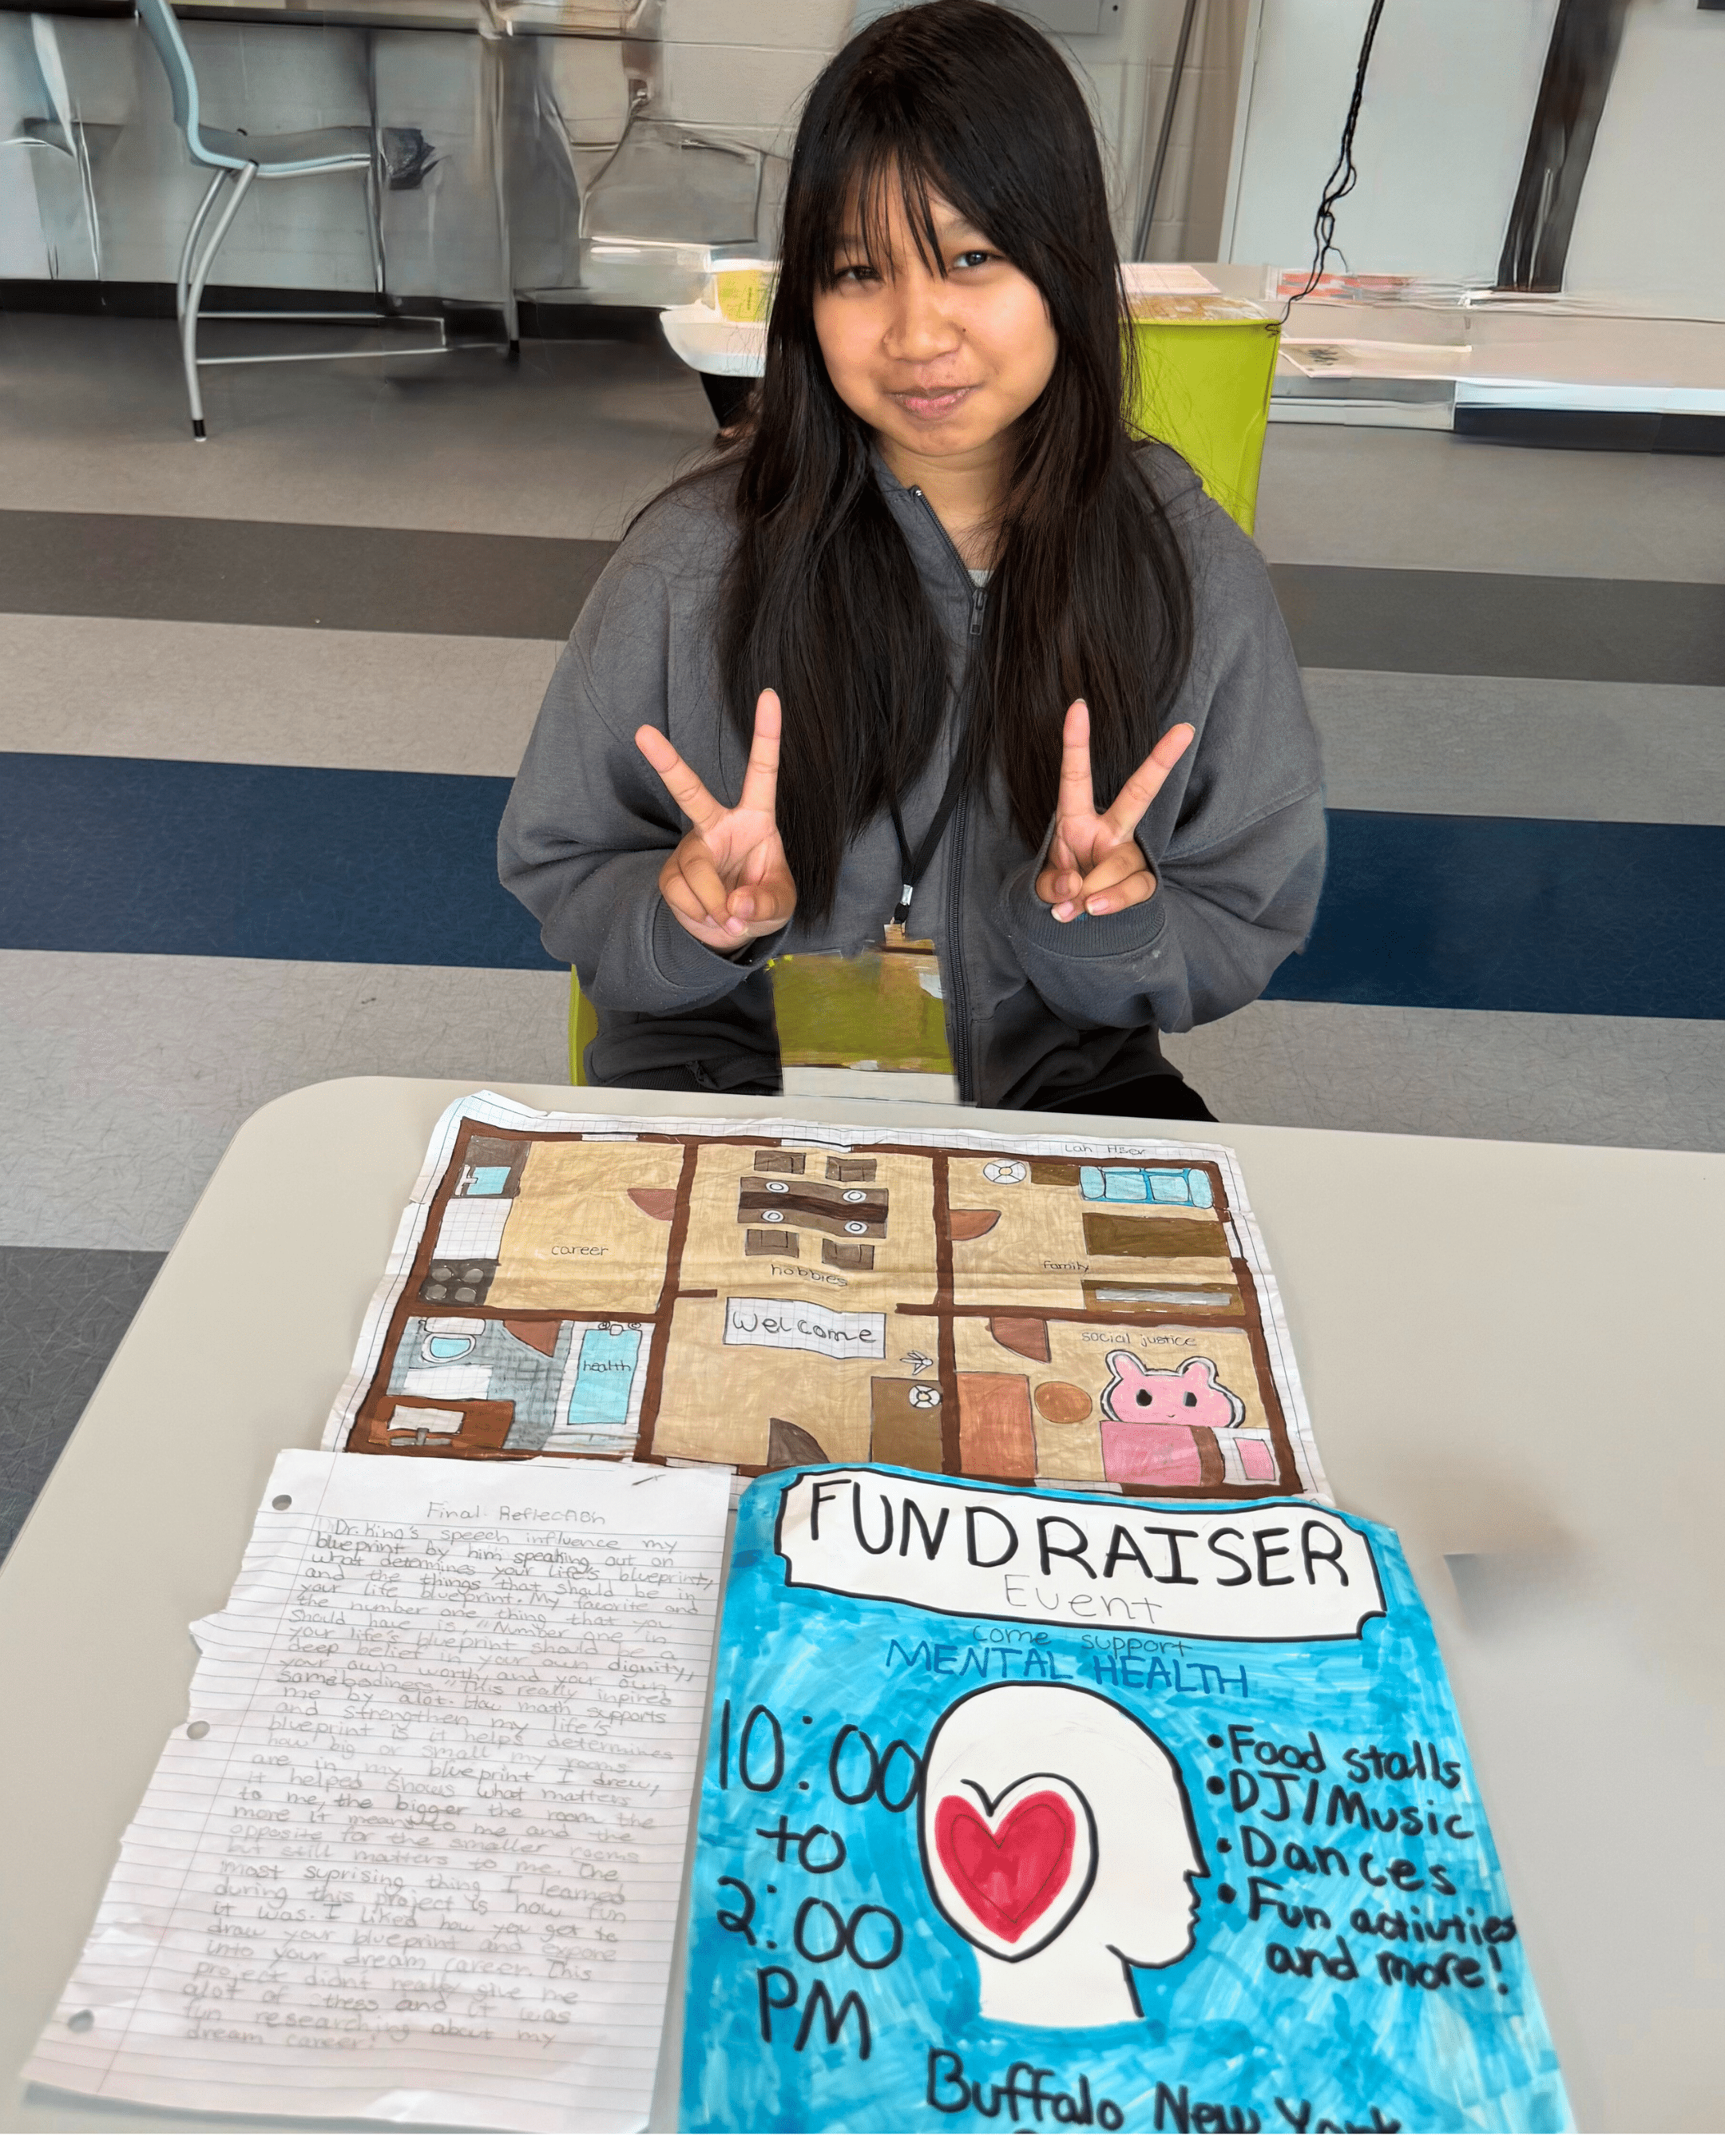 Lah Htser
career
hobbies
family
Welcome
health
social justice
Final Reflection
Dr. King's speech influence my
blueprint by him speaking out on
what determines your life's blueprint,
and the things that should be in
your life blueprint. My favorite and
the number one thing that you
should have is, "Number one in
your life's blueprint should be a
deep belief in your own dignity,
your own worth and your own
somebodiness." This really inpired
me by alot. How math supports
and strengthen my life's
blueprint is it helps determines
how big or small my rooms
are in my blueprint I drew,
it helped shows what matters
to me, the bigger the room the
more it means to me and the
opposite for the smaller rooms
but still matters to me. The
most suprising thing I learned
during this project is how fun
it was. I liked how you get to
draw your blueprint and expore
into your dream career. This
project didnt really give me
alot of stress and it was
fun researching about my
dream career!
FUNDRAISER
Event
come support
MENTAL HEALTH
10:00
to
2:00
PM
• Food stalls
• DJ/Music
• Dances
• Fun activties
and more!
Buffalo New York